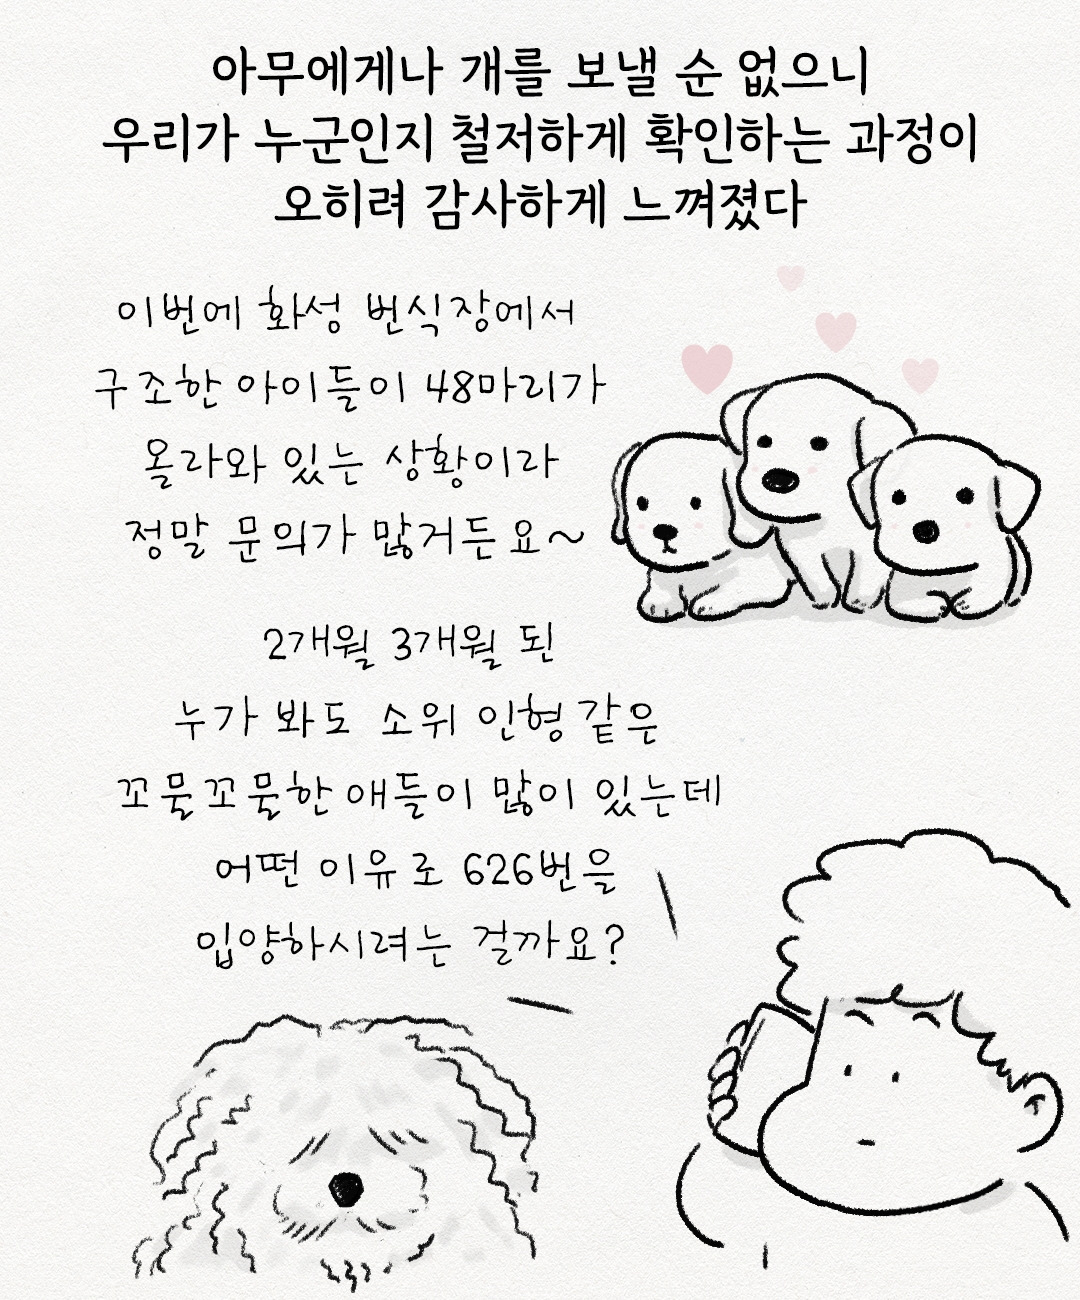 아무에게나 개를 보낼 순 없으니
우리가 누군인지 철저하게 확인하는 과정이
오히려 감사하게 느껴졌다
이번에 화성 번식장에서
구조한 아이들이 48마리가
올라와 있는 상황이라
정말 문의가 많거든요~
2개월 3개월 된
누가 봐도 소위 인형 같은
꼬물꼬물한 애들이 많이 있는데
어떤 이유로 626번을
입양하시려는 걸까요?